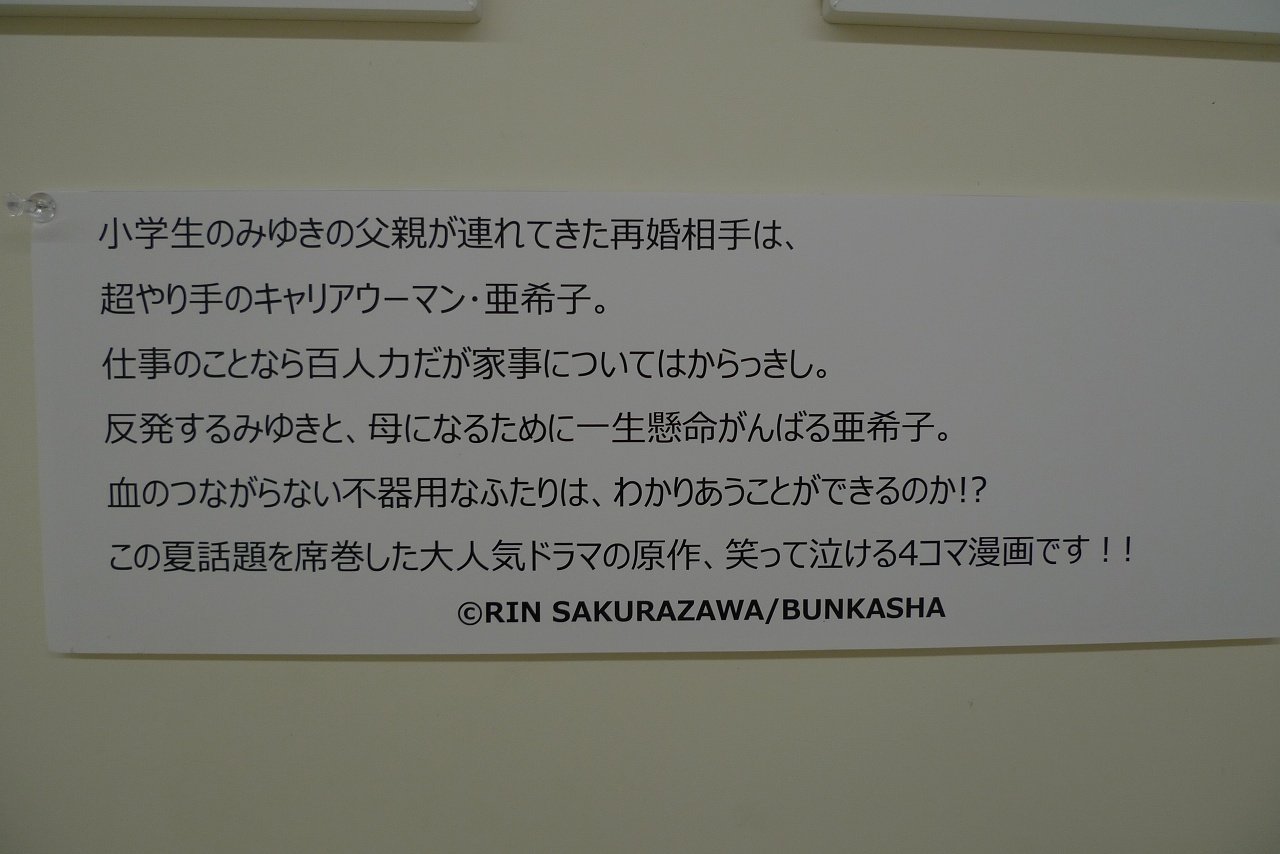 小学生のみゆきの父親が連れてきた再婚相手は、
超やり手のキャリアウーマン・亜希子。
仕事のことなら百人力だが家事についてはからっきし。
反発するみゆきと、母になるために一生懸命がんばる亜希子。
血のつながらない不器用なふたりは、わかりあうことができるのか!?
この夏話題を席巻した大人気ドラマの原作、笑って泣ける4コマ漫画です！！
©RIN SAKURAZAWA/BUNKASHA